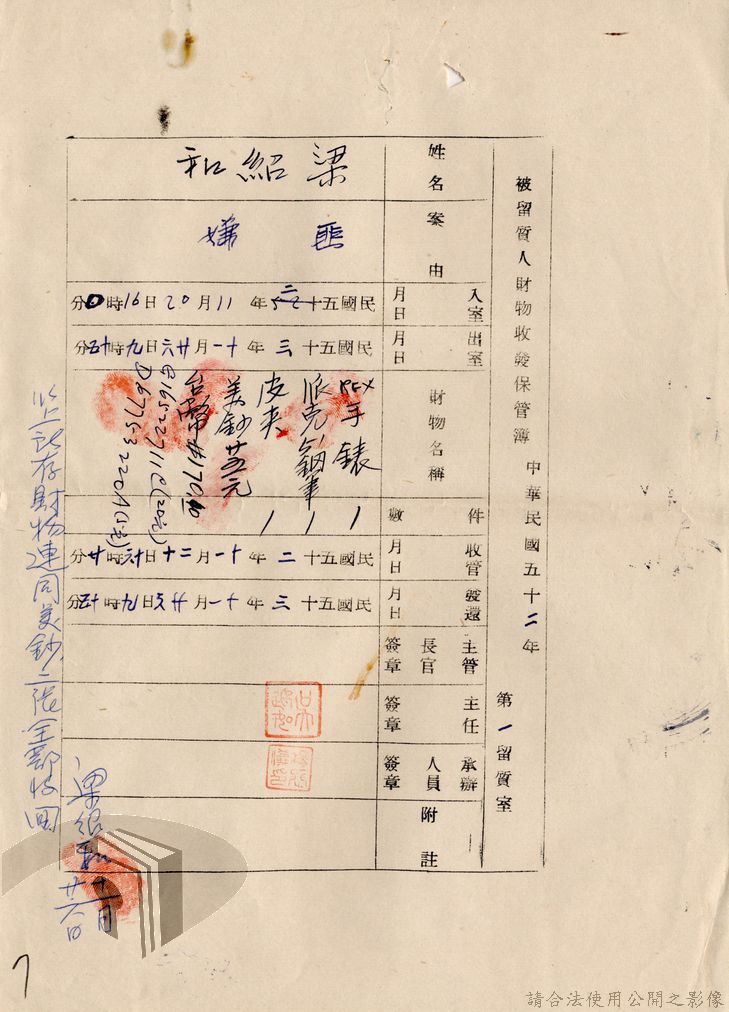 被留質人財物收發保管簿 中華民國五十二年 第一留質室
姓名 梁紹和
案由 匪嫌
入室月日 民國五十二年11月20日16時0分
出室月日 民國五十三年十一月廿六日九時五十分
財物名稱
REX手錶
派克鋼筆
皮夾
美鈔廿五元
台幣#170.00
@16522711C(20元)
D67753220A(5元)
件數 1 1 1
收管月日 民國五十二年十一月二十日十六時廿分
發還月日 民國五十三年十一月廿六日九時五十分
主管長官簽章
主任簽章
承辦人員簽章
附註
以上所存財物連同美鈔二張全部收回
梁紹和
十一月
廿六日
7
請合法使用公開之影像